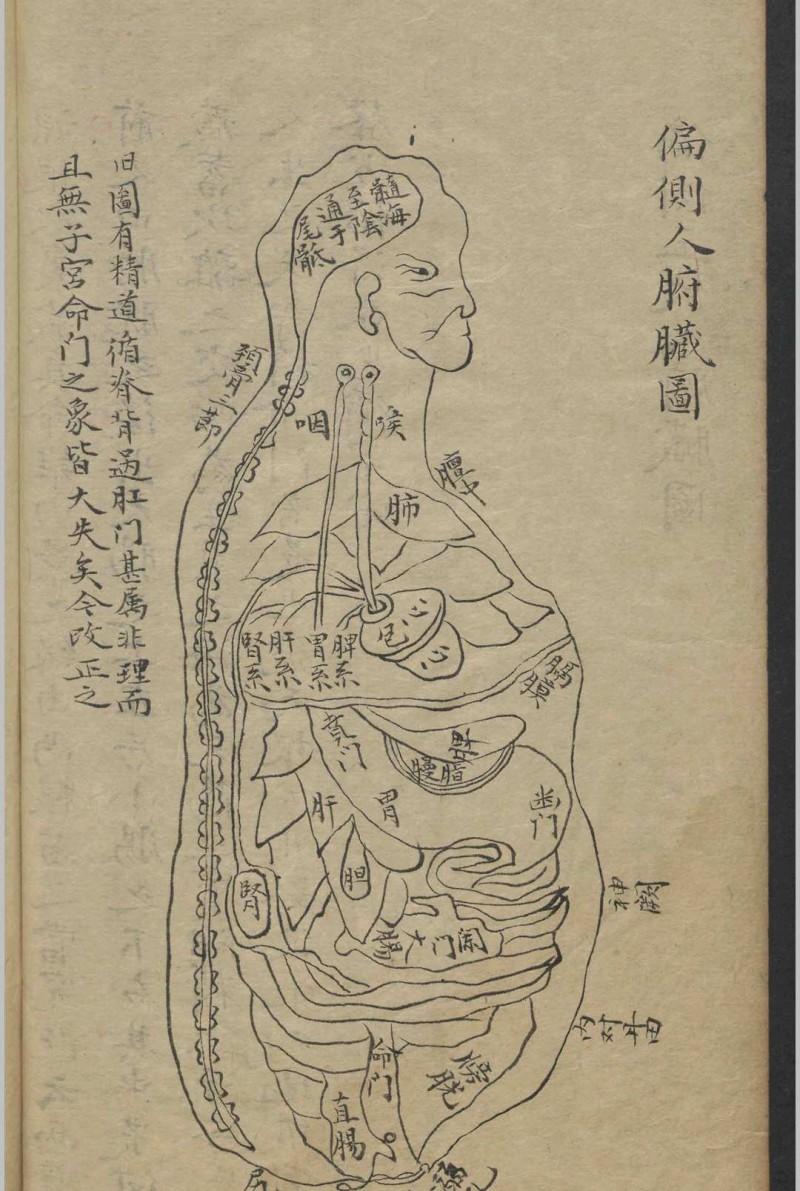 偏側人腑臟圖
髓海
至陰
通于
尾骶
頚骨三莭
咽
喉
膻中
肺
心包
心
脾系
胃系
肝系
腎系
膈膜
賁门
脾
脂膜
幽门
胃
肝
胆
腎
神闕
闌门
大腸
命门
膀胱
直腸
旧圖有精道循脊背過肛门甚属非理而
且無子宮命门之象皆大失矣今改正之